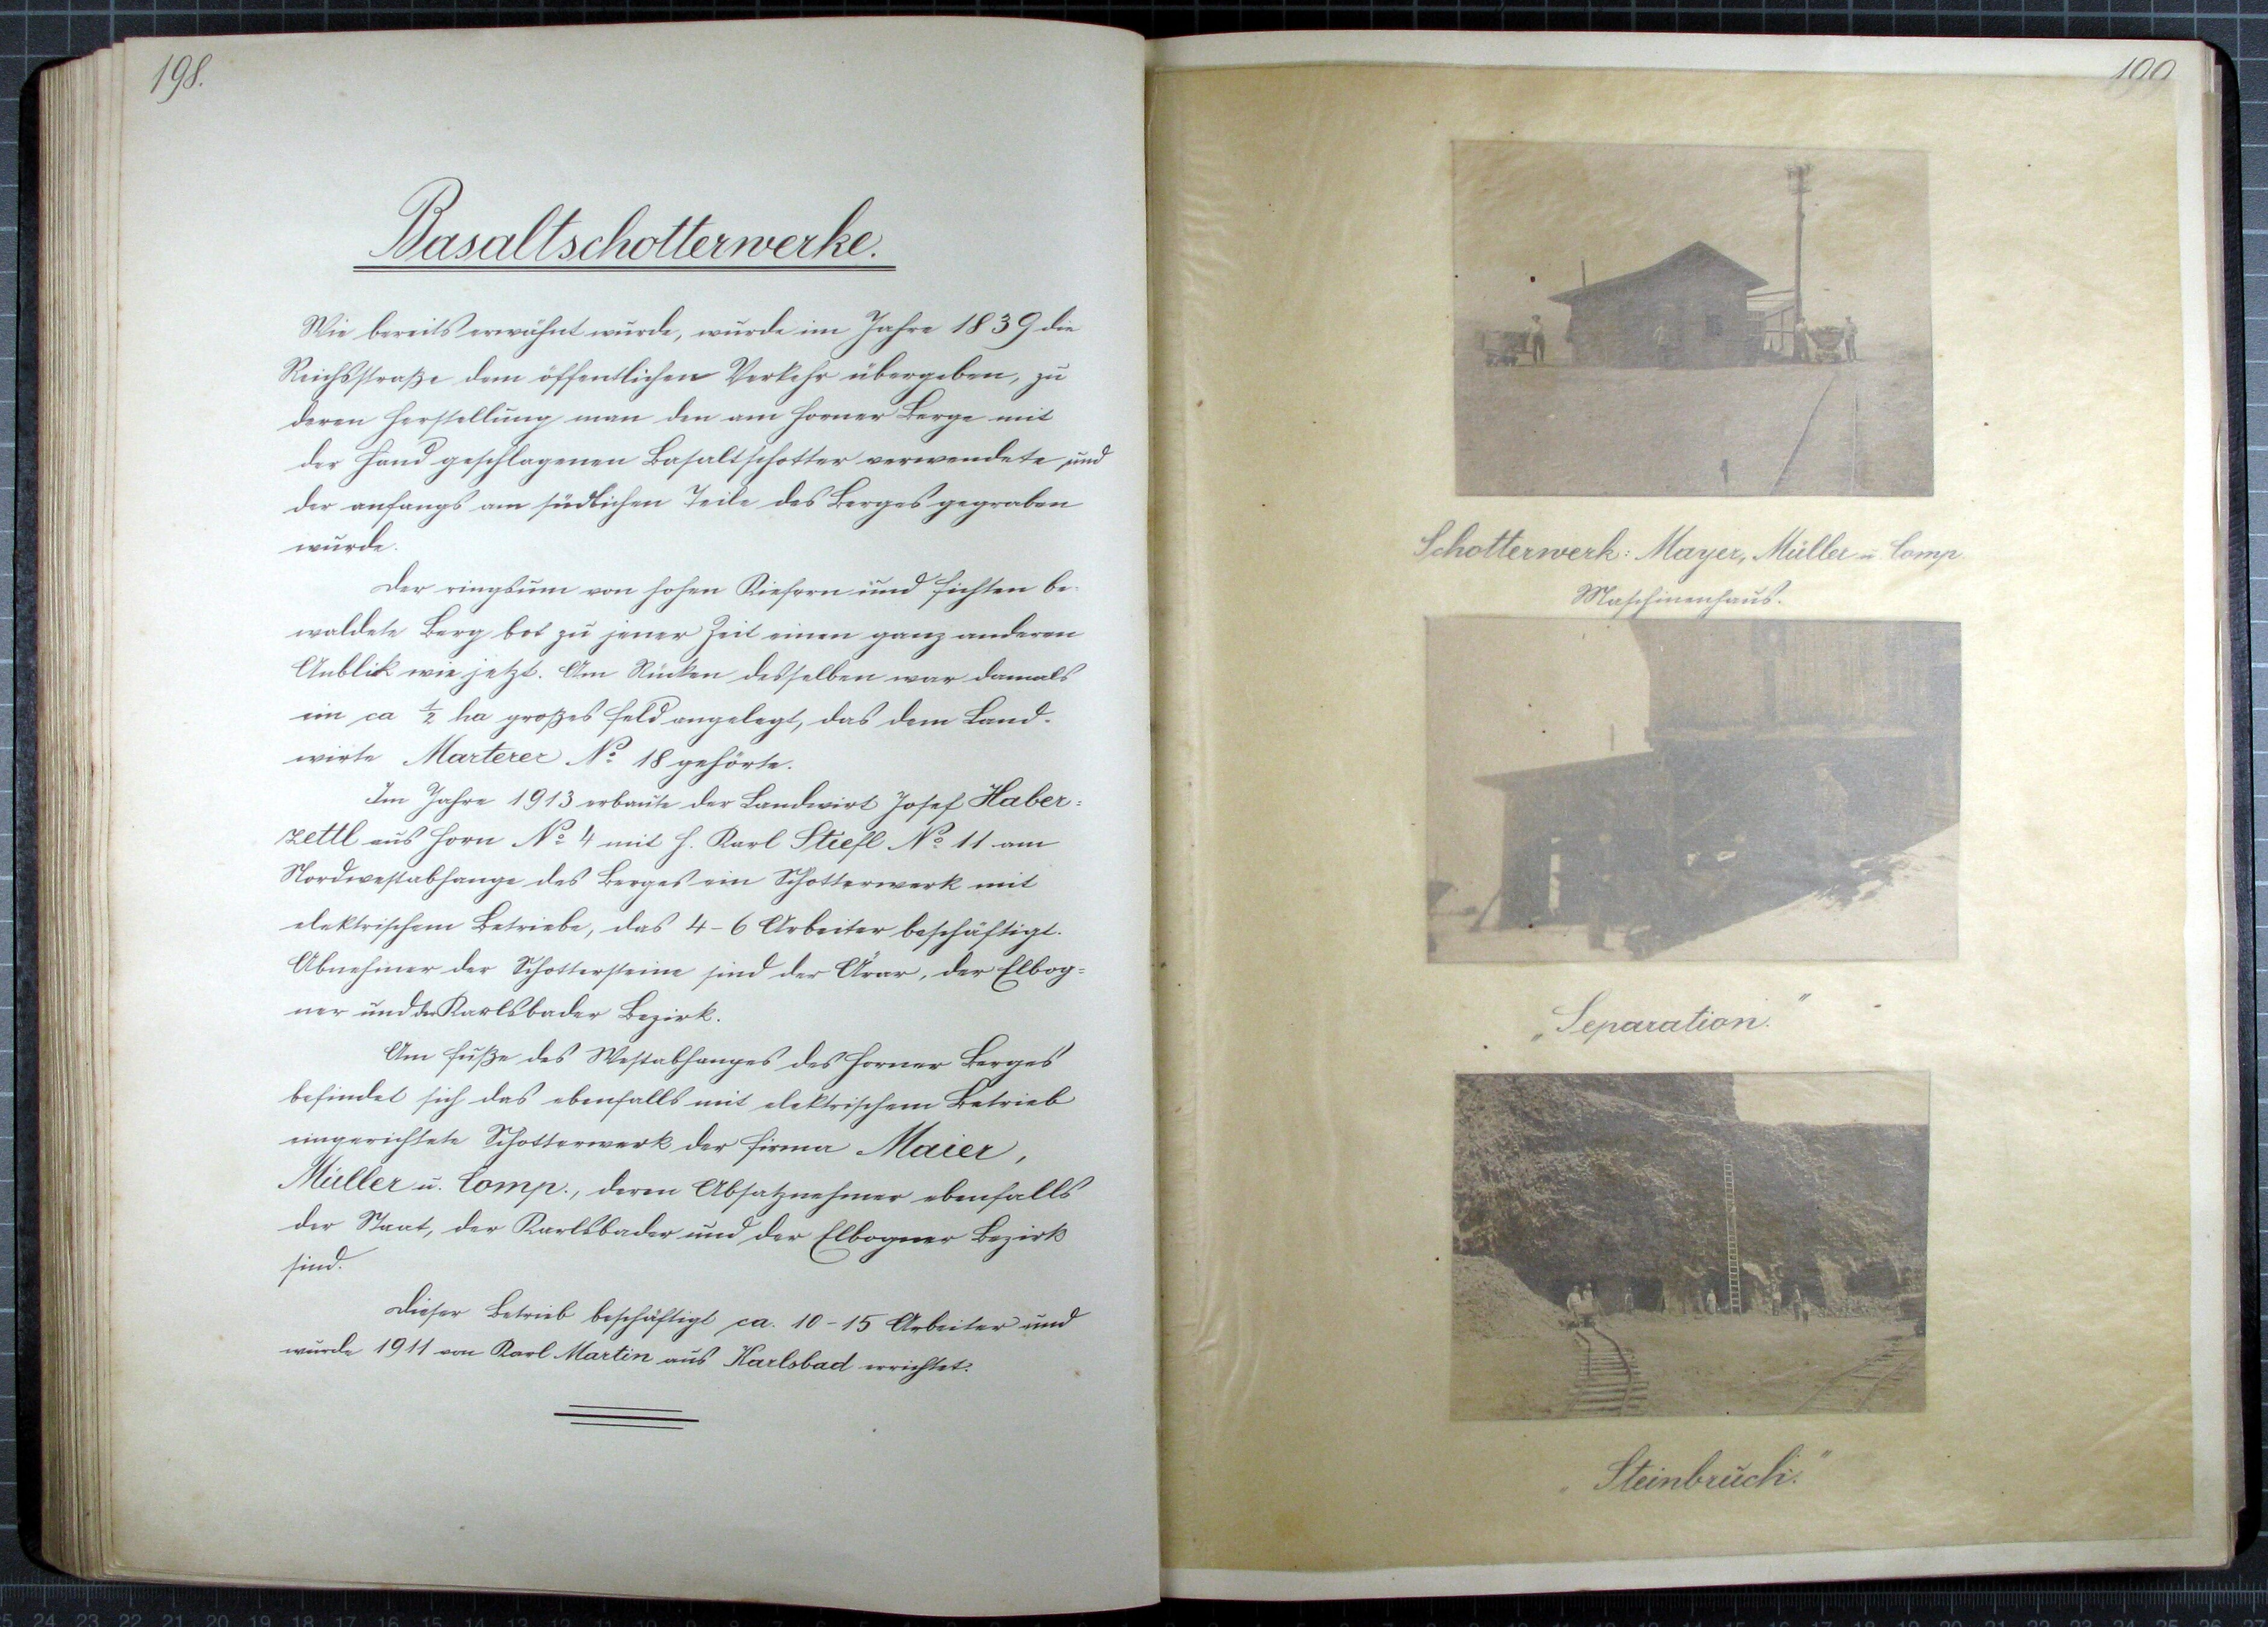 198.
Basaltschotterwerke.
Wie bereits erwähnt wurde, wurde im Jahre 1839 die
Reichsstraße dem öffentlichen Verkehr übergeben, zu
deren Herstellung man den am Horner Berge mit
der Hand geschlagenen Basaltschotter verwendete, und
der anfangs am südlichen Teile des Berges gegraben
wurde.
Der ringsum von hohen Kiefern und Fichten be-
waldete Berg bot zu jener Zeit einen ganz anderen
Anblick wie jetzt. Am Rücken desselben war damals
ein ca ½ ha großes Feld angelegt, das dem Land-
wirte Marterer No 18 gehörte.
Im Jahre 1913 erbaute der Landwirt Josef Haber=
zettl aus Horn No 4 mit H. Karl Stiefl No 11 am
Nordwestabhange des Berges ein Schotterwerk mit
elektrischem Betriebe, das 4-6 Arbeiter beschäftigt.
Abnehmer der Schottersteine sind der Ärar, der Elbog=
ner und der Karlsbader Bezirk.
Am Fuße des Westabhanges des Horner Berges
befindet sich das ebenfalls mit elektrischem Betrieb
eingerichtete Schotterwerk der Firma Maier,
Müller u. Comp., deren Absatznehmer ebenfalls
der Staat, der Karlsbader und der Elbogner Bezirk
sind.
Dieser Betrieb beschäftigt ca. 10-15 Arbeiter und
wurde 1911 von Karl Martin aus Karlsbad errichtet.
199
Schotterwerk: Mayer, Müller u. Comp
Maschinenhaus.
„Separation."
„Steinbruch."
24 23 22 21 20 19 18 17 16 15 14 13 12 11 10